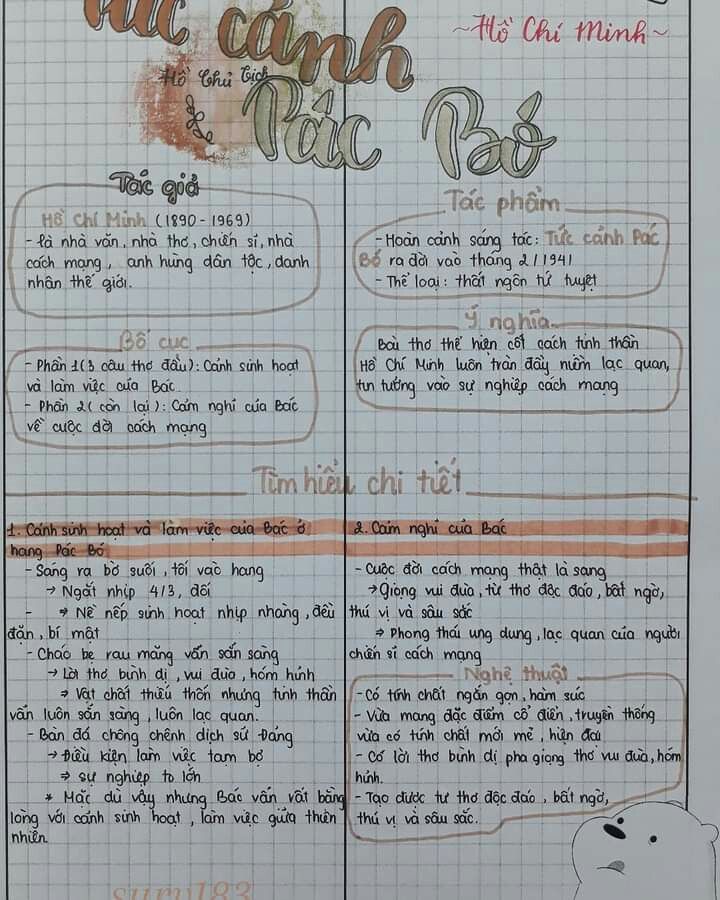 Tức cảnh
~Hồ Chí Minh~
Hồ Chủ Tịch
Pác Bó
Tác giả
Hồ Chí Minh (1890-1969)
- là nhà văn, nhà thơ, chiến sĩ, nhà
cách mạng, anh hùng dân tộc, danh
nhân thế giới.
Bố cục
- Phần 1(3 câu thơ đầu): Cảnh sinh hoạt
và làm việc của Bác.
- Phần 2( còn lại): Cảm nghĩ của Bác
về cuộc đời cách mạng
Tác phẩm
- Hoàn cảnh sáng tác: Tức cảnh Pác
Bó ra đời vào tháng 2/1941
- Thể loại: thất ngôn tứ tuyệt
Ý nghĩa
Bài thơ thể hiện cốt cách tinh thần
Hồ Chí Minh luôn tràn đầy niềm lạc quan,
tin tưởng vào sự nghiệp cách mạng
Tìm hiểu chi tiết
1. Cảnh sinh hoạt và làm việc của Bác ở
hang Pác Bó
- Sáng ra bờ suối, tối vào hang
→ Ngắt nhịp 4/3, đối
- ⇒ Nề nếp sinh hoạt nhịp nhàng, đều
đặn, bí mật
- Cháo bẹ rau măng vẫn sẵn sàng
→ Lời thơ bình dị, vui đùa, hóm hỉnh
⇒ Vật chất thiếu thốn nhưng tinh thần
vẫn luôn sẵn sàng, luôn lạc quan.
- Bàn đá chông chênh dịch sử Đảng
→ Điều kiện làm việc tạm bợ
⇒ sự nghiệp to lớn
* Mặc dù vậy nhưng Bác vẫn vất bằng
lòng với cảnh sinh hoạt, làm việc giữa thiên
nhiên.
2. Cảm nghĩ của Bác
- Cuộc đời cách mạng thật là sang
→ Giọng vui đùa, từ thơ độc đáo, bất ngờ,
thú vị và sâu sắc
⇒ Phong thái ung dung, lạc quan của người
chiến sĩ cách mạng
Nghệ thuật
- Có tính chất ngắn gọn, hàm súc
- Vừa mang đặc điểm cổ điển, truyền thống
vừa có tính chất mới mẻ, hiện đại
- Có lời thơ bình dị pha giọng thơ vui đùa, hóm
hỉnh.
- Tạo được tư thơ độc đáo, bất ngờ,
thú vị và sâu sắc.